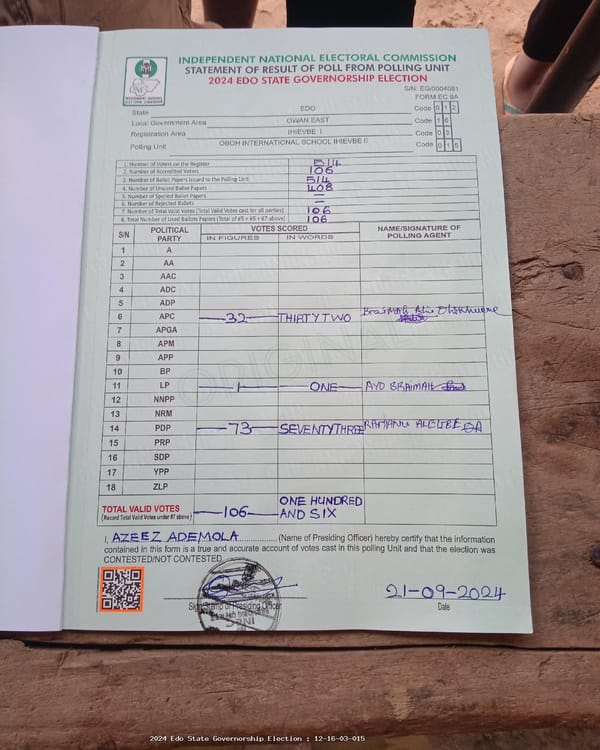 INDEPENDENT NATIONAL ELECTORAL COMMISSION
STATEMENT OF RESULT OF POLL FROM POLLING UNIT
2024 EDO STATE GOVERNORSHIP ELECTION
S/N: EG/0004081
FORM EC 8A
State EDO Code 0 1 2
Local Government Area OWAN EAST Code 1 6
Registration Area IHIEVBE I Code 0 3
Polling Unit OBOH INTERNATIONAL SCHOOL IHIEVBE II Code 0 1 5
1. Number of Voters on the Register 514
2. Number of Accredited Voters 106
3. Number of Ballot Papers Issued to the Polling Unit 514
4. Number of Unused Ballot Papers 408
5. Number of Spoiled Ballot Papers —
6. Number of Rejected Ballots —
7. Number of Total Valid Votes (Total Valid Votes cast for all parties) 106
8. Total Number of Used Ballots Papers (Total of #5 + #6 + #7 above) 106
S/N POLITICAL PARTY VOTES SCORED NAME/SIGNATURE OF POLLING AGENT
IN FIGURES IN WORDS
1 A
2 AA
3 AAC
4 ADC
5 ADP
6 APC 32 THIRTY TWO Braimah
7 APGA
8 APM
9 APP
10 BP
11 LP 1 ONE AYO BRAIMAH
12 NNPP
13 NRM
14 PDP 73 SEVENTY THREE
15 PRP
16 SDP
17 YPP
18 ZLP
TOTAL VALID VOTES 106 ONE HUNDRED AND SIX
(Record Total Valid Votes under #7 above)
I, AZEEZ ADEMOLA (Name of Presiding Officer) hereby certify that the information
contained in this form is a true and accurate account of votes cast in this polling Unit and that the election was
CONTESTED/NOT CONTESTED
Sign/Stamp of Presiding Officer
21-09-2024
Date
2024 Edo State Governorship Election : 12-16-03-015